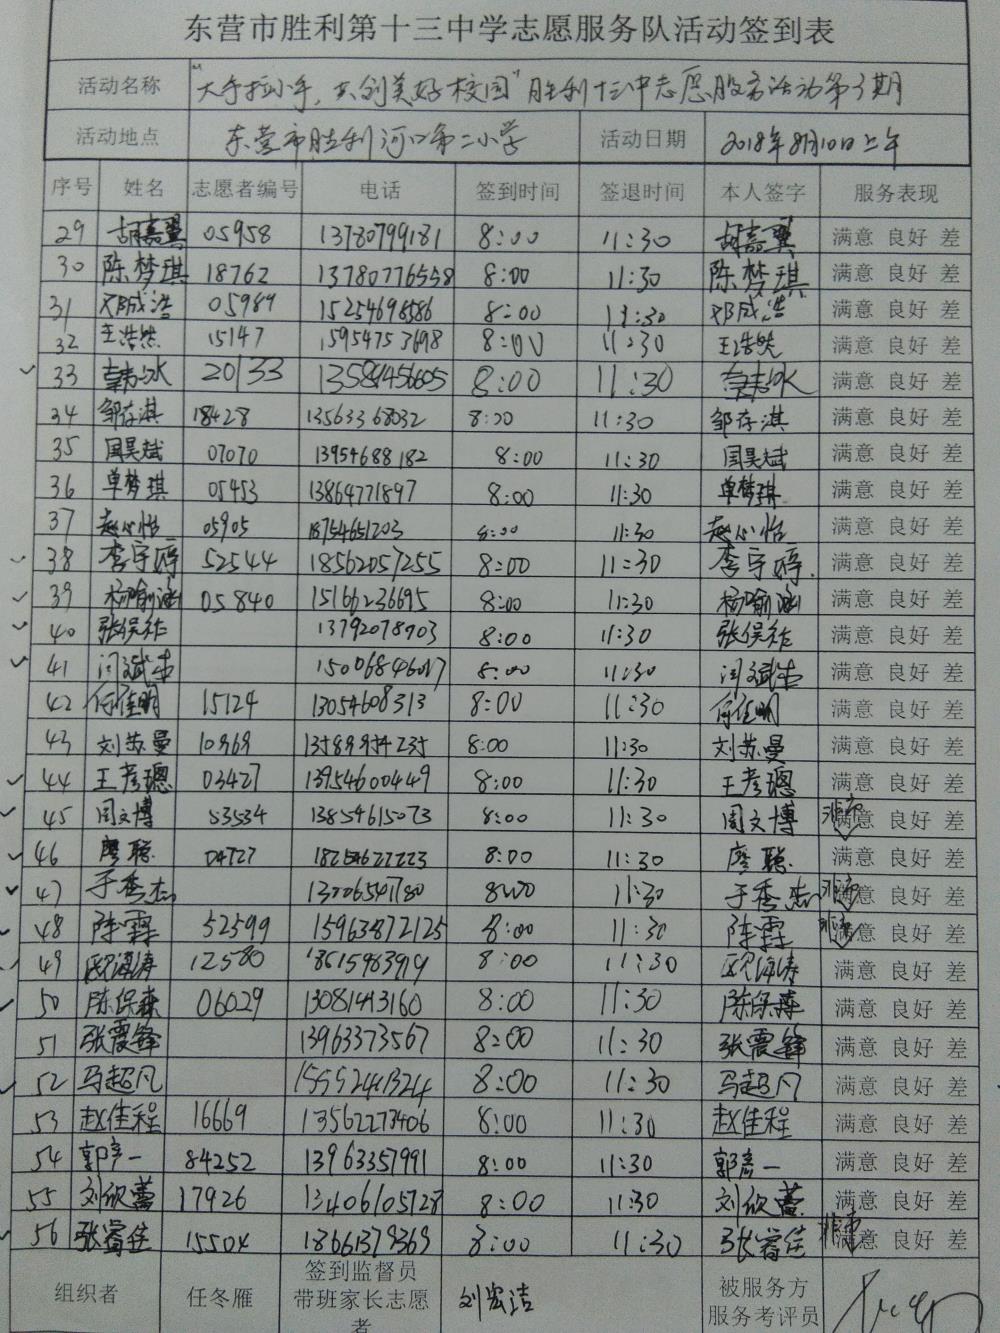 东营市胜利第十三中学志愿服务队活动签到表
活动名称 "大手拉小手，共创美好校园"胜利十三中志愿服务活动第3期
活动地点 东营市胜利河口第二小学 活动日期 2018年8月10日上午
序号 姓名 志愿者编号 电话 签到时间 签退时间 本人签字 服务表现
29 胡嘉翼 05958 13780799181 8:00 11:30 胡嘉翼 满意 良好 差
30 陈梦琪 18762 13780776558 8:00 11:30 陈梦琪 满意 良好 差
31 邓成浩 05989 15254698586 8:00 11:30 邓成浩 满意 良好 差
32 王浩然 15147 15954753698 8:00 11:30 王浩然 满意 良好 差
33 20133 8:00 11:30 满意 良好 差
34 邹存淇 18428 13563368032 8:00 11:30 邹存淇 满意 良好 差
35 国昊斌 07070 13954688182 8:00 11:30 国昊斌 满意 良好 差
36 单梦琪 05453 13864771897 8:00 11:30 单梦琪 满意 良好 差
37 赵心怡 05905 18754651203 8:00 11:30 赵心怡 满意 良好 差
38 李宇婷 52544 18562057255 8:00 11:30 李宇婷 满意 良好 差
39 杨喻涵 05840 15166236695 8:00 11:30 杨喻涵 满意 良好 差
40 13792078903 8:00 11:30 满意 良好 差
41 闫斌杰 15006846017 8:00 11:30 闫斌杰 满意 良好 差
42 何佳明 15124 13054608313 8:00 11:30 何佳明 满意 良好 差
43 刘苏曼 10969 13589954235 8:00 11:30 刘苏曼 满意 良好 差
44 王彦璁 03427 13954600449 8:00 11:30 王彦璁 满意 良好 差
45 周文博 53534 13854615073 8:00 11:30 周文博 满意 良好 差
46 廖聪 04727 18254622223 8:00 11:30 廖聪 满意 良好 差
47 于秀杰 8:00 11:30 于秀杰 满意 良好 差
48 陈霖 52599 15963872125 8:00 11:30 陈霖 满意 良好 差
49 12580 8:00 11:30 满意 良好 差
50 陈保森 06029 13081413160 8:00 11:30 陈保森 满意 良好 差
51 张震锋 13963373567 8:00 11:30 张震锋 满意 良好 差
52 马超凡 8:00 11:30 马超凡 满意 良好 差
53 赵佳程 16669 13562273406 8:00 11:30 赵佳程 满意 良好 差
54 郭彦一 84252 13963357991 8:00 11:30 郭彦一 满意 良好 差
55 刘欣蕾 17926 13406105728 8:00 11:30 刘欣蕾 满意 良好 差
56 张睿佳 15504 18661379369 8:00 11:30 张睿佳 满意 良好 差
组织者 任冬雁 签到监督员
带班家长志愿
者 刘宏洁 被服务方
服务考评员